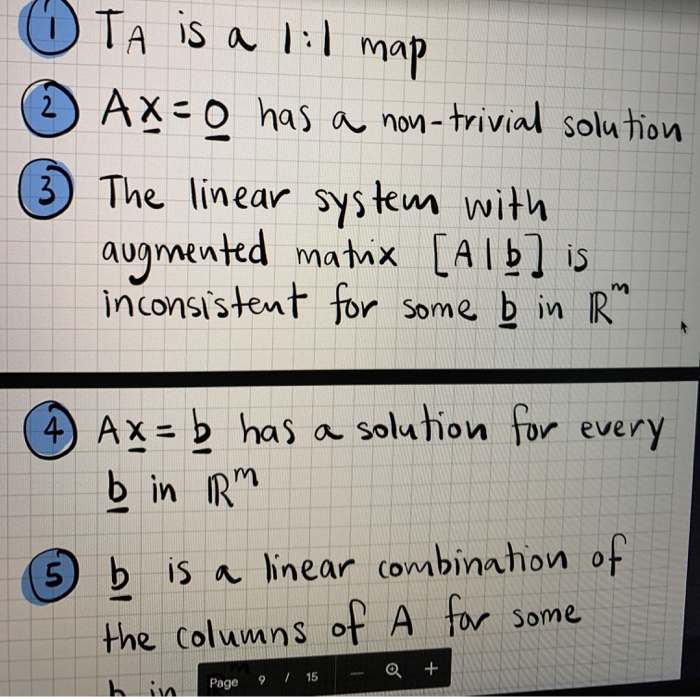 1 T_A is a 1:1 map
2 Ax = 0 has a non-trivial solution
3 The linear system with
augmented matrix [A|b] is
inconsistent for some b in ℝᵐ
4 Ax = b has a solution for every
b in ℝᵐ
5 b is a linear combination of
the columns of A for some
b in
Page 9 / 15 — +